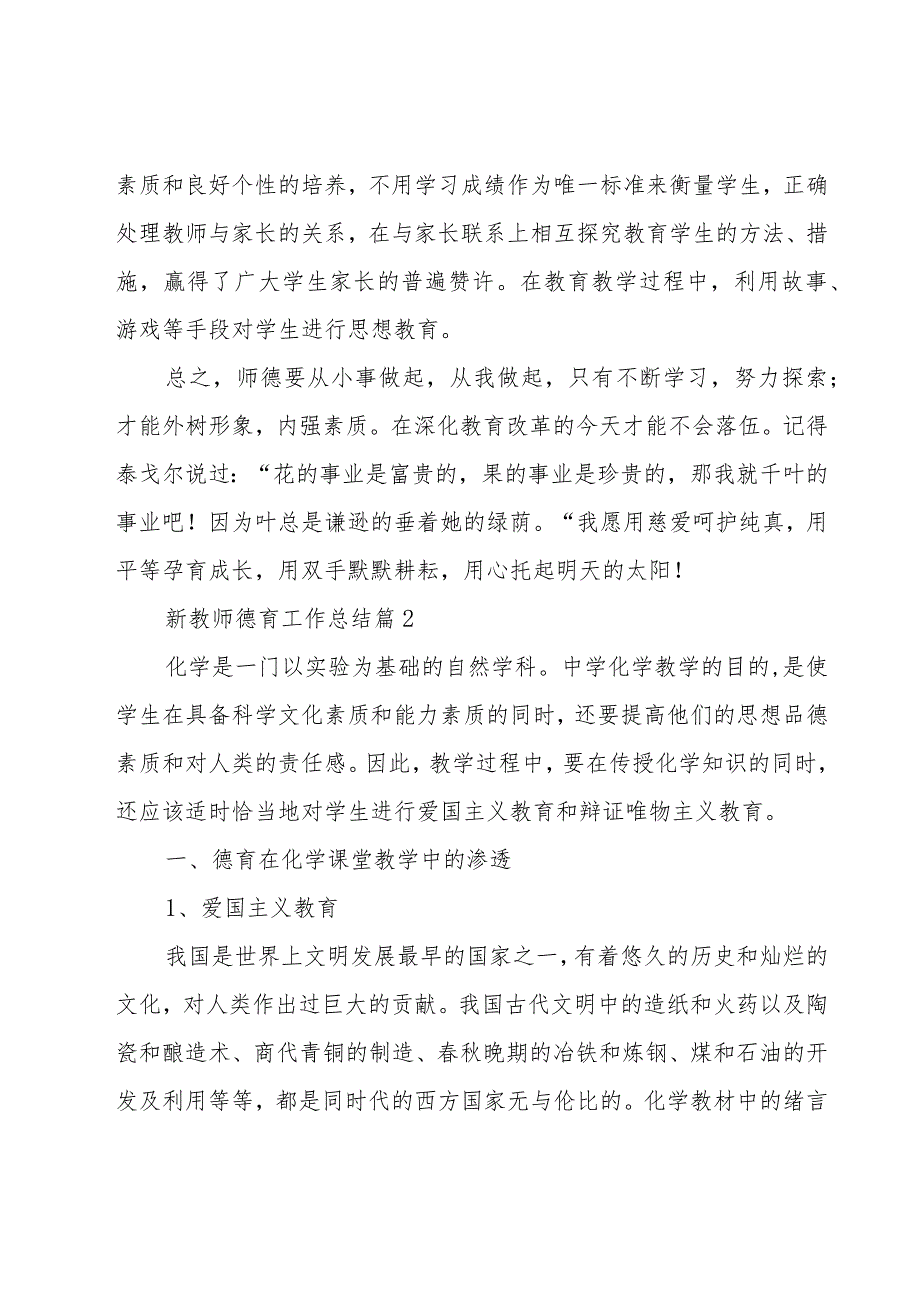 素质和良好个性的培养，不用学习成绩作为唯一标准来衡量学生，正确
处理教师与家长的关系，在与家长联系上相互探究教育学生的方法、措
施，赢得了广大学生家长的普遍赞许。在教育教学过程中，利用故事、
游戏等手段对学生进行思想教育。
总之，师德要从小事做起，从我做起，只有不断学习，努力探索；
才能外树形象，内强素质。在深化教育改革的今天才能不会落伍。记得
泰戈尔说过：“花的事业是富贵的，果的事业是珍贵的，那我就千叶的
事业吧！因为叶总是谦逊的垂着她的绿荫。“我愿用慈爱呵护纯真，用
平等孕育成长，用双手默默耕耘，用心托起明天的太阳！
新教师德育工作总结篇2
化学是一门以实验为基础的自然学科。中学化学教学的目的,是使
学生在具备科学文化素质和能力素质的同时,还要提高他们的思想品德
素质和对人类的责任感。因此,教学过程中,要在传授化学知识的同时,
还应该适时恰当地对学生进行爱国主义教育和辩证唯物主义教育。
一、德育在化学课堂教学中的渗透
1、爱国主义教育
我国是世界上文明发展最早的国家之一,有着悠久的历史和灿烂的
文化，对人类作出过巨大的贡献。我国古代文明中的造纸和火药以及陶
瓷和酿造术、商代青铜的制造、春秋晚期的冶铁和炼钢、煤和石油的开
发及利用等等，都是同时代的西方国家无与伦比的。化学教材中的绪言